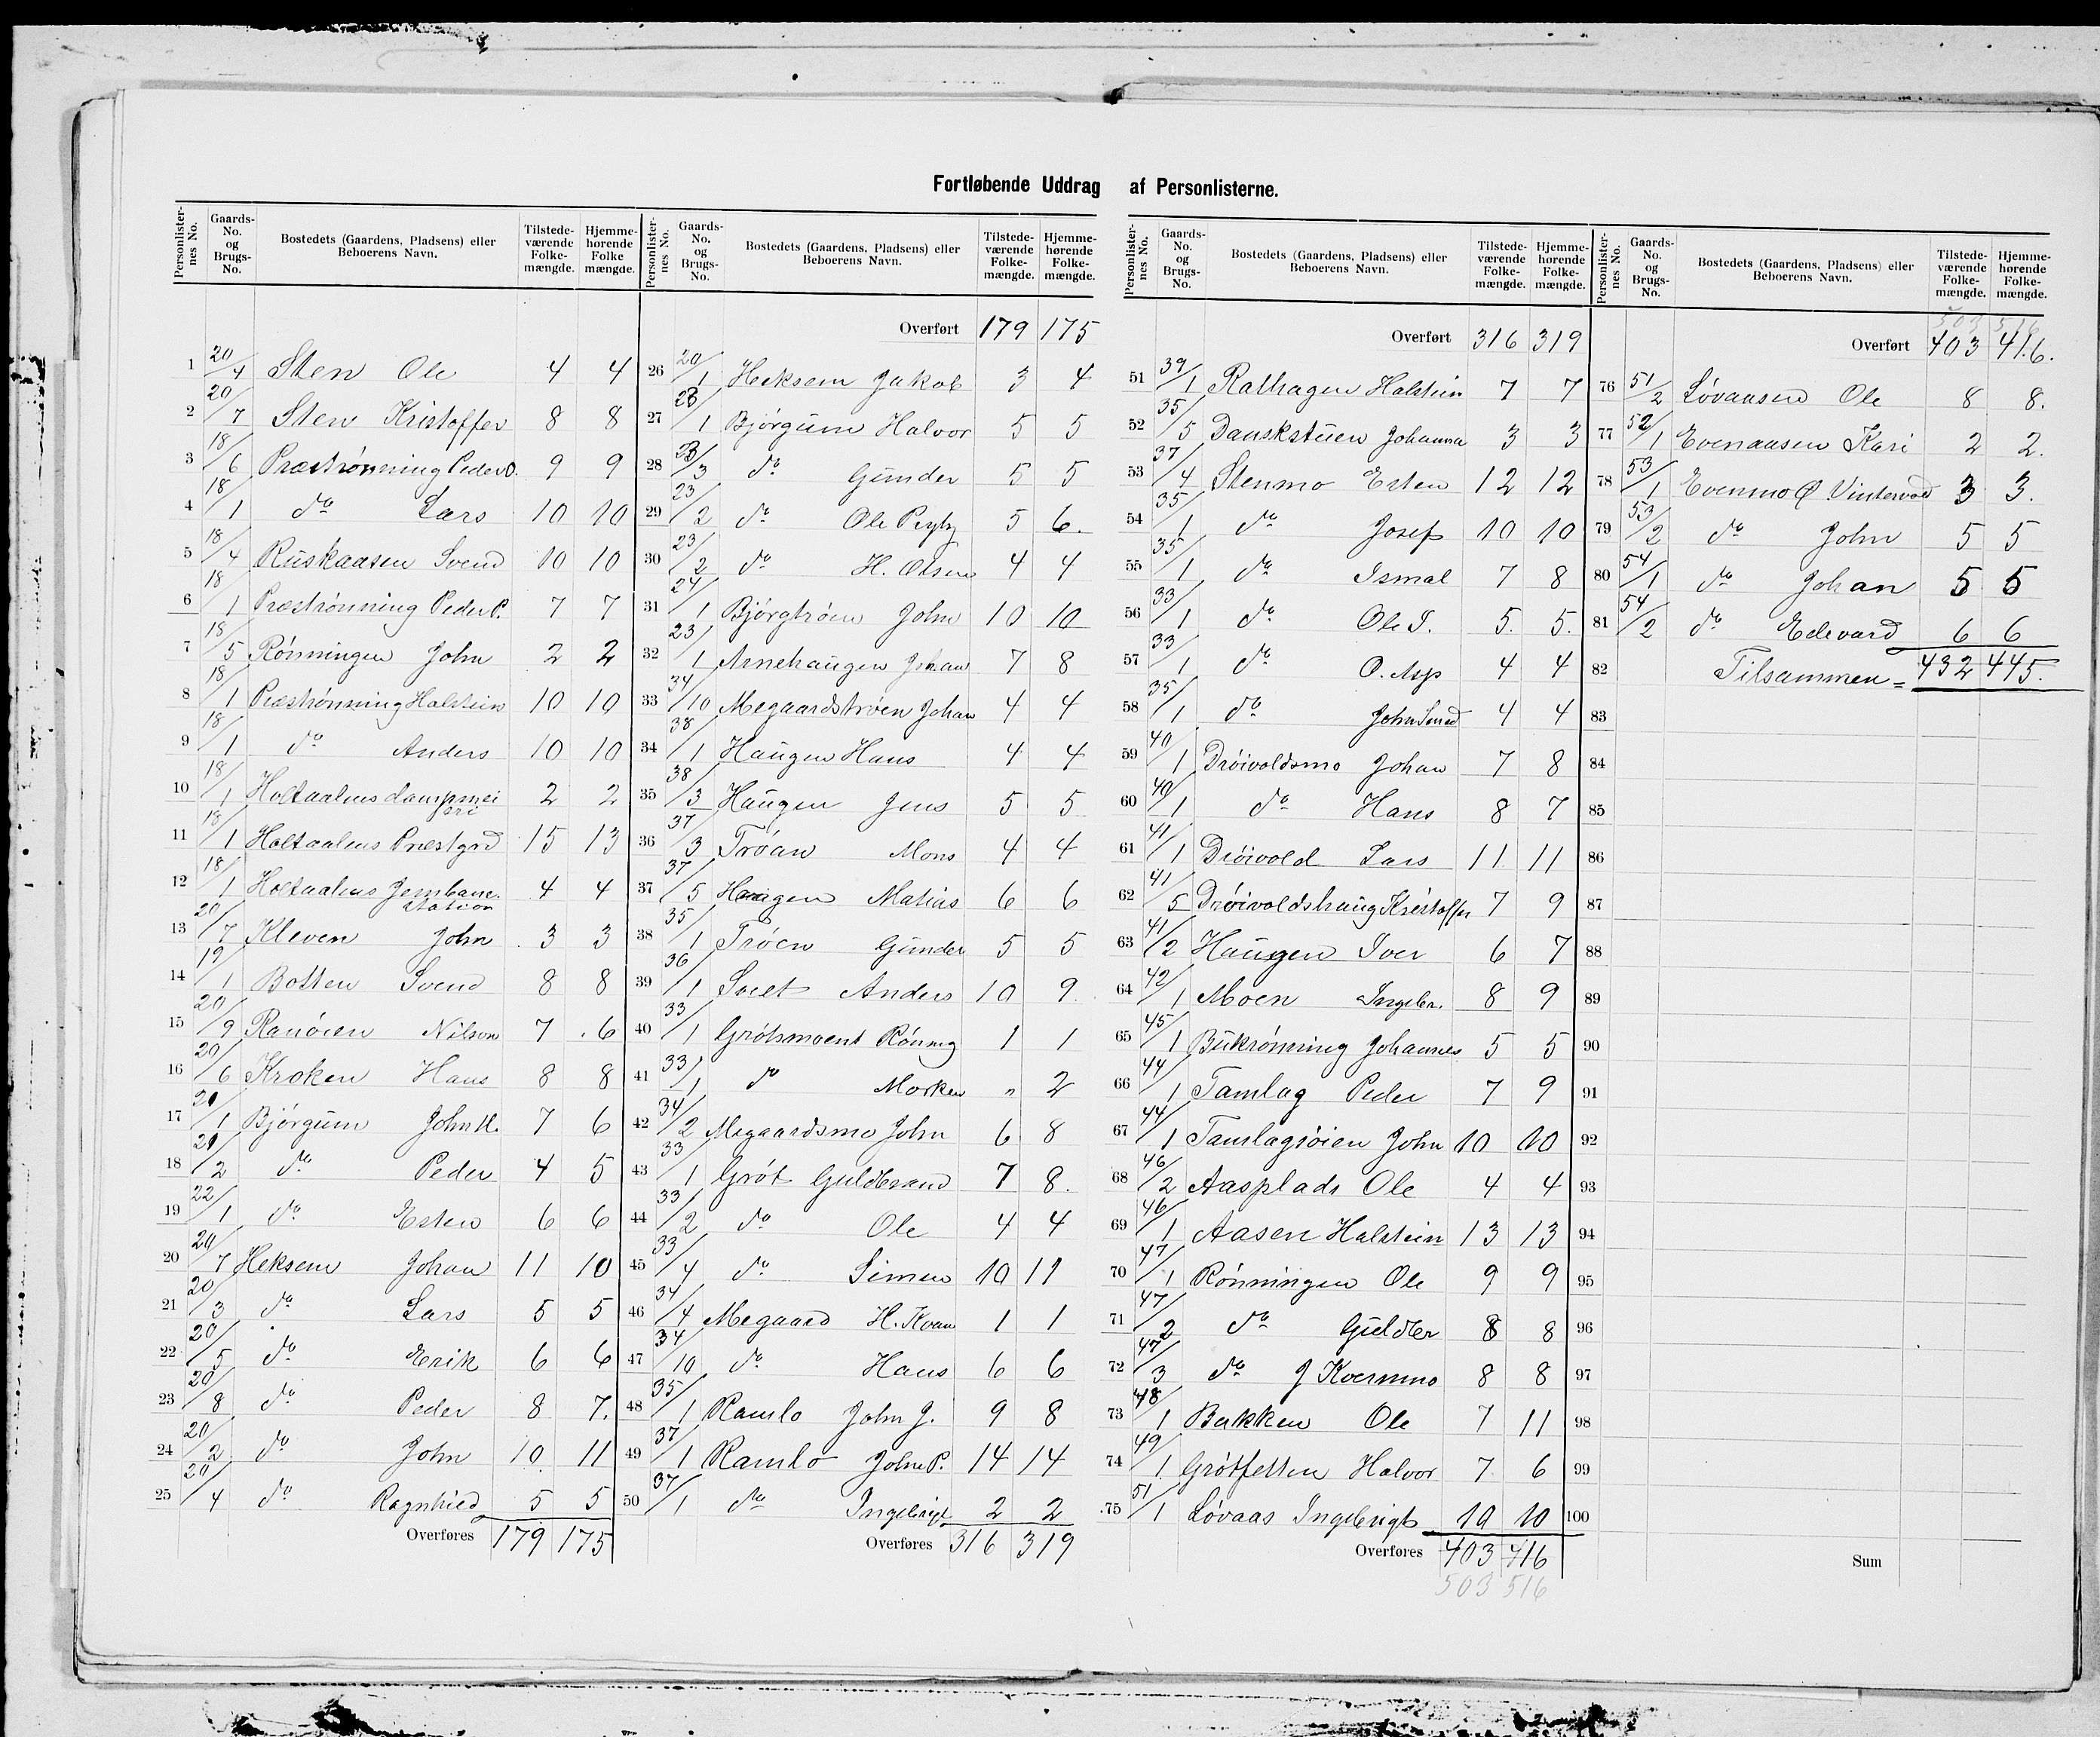 Fortløbende Uddrag af Personlisterne.
Personlister-nes No. Gaards-No. og Brugs-No. Bostedets (Gaardens, Pladsens) eller Beboerens Navn. Tilstede-værende Folke-mængde. Hjemme-hørende Folke mængde.
1 20/4 Sten Ole 4 4
2 20/7 Sten Kristoffer 8 8
3 18/6 Præströnning Peder O. 9 9
4 18/1 do Lars 10 10
5 18/4 Ruskaasen Svend 10 10
6 18/1 Præströnning Peder P. 7 7
7 18/5 Rönningen John 2 2
8 18/1 Præströnning Halstein 10 10
9 18/1 do Anders 10 10
10 18/1 Holtaalens dampmei
eri 2 2
11 18/1 Holtaalens Præstgrd 15 13
12 18/1 Holtaalens Jernbane.
station 4 4
13 20/7 Kleven John 3 3
14 19/1 Botten Svend 8 8
15 20/9 Ranöien Nilson 7 6
16 20/6 Kroken Hans 8 8
17 21/1 Bjørgum John H. 7 6
18 21/2 do Peder 4 5
19 22/1 do Esten 6 6
20 20/7 Heksem Johan 11 10
21 20/3 do Lars 5 5
22 20/5 do Erik 6 6
23 20/8 do Peder 8 7.
24 20/2 do John 10 11
25 20/4 do Ragnhild 5 5
Overføres 179 175
Personlister-nes No. Gaards-No. og Brugs-No. Bostedets (Gaardens, Pladsens) eller Beboerens Navn. Tilstede-værende Folke-mængde. Hjemme-hørende Folke-mængde.
Overført 179 175
26 20/1 Heksem Jakob 3 4
27 23/1 Bjørgum Halvor 5 5
28 23/3 do Gunder 5 5
29 23/2 do Ole 5 6.
30 23/2 do H. Olsen 4 4
31 24/1 Bjørgtröen John 10 10
32 23/1 Arnehaugen Johan 7 8
33 34/10 Megaardströen Johan 4 4
34 38/1 Haugen Hans 4 4
35 38/3 Haugen Jens 5 5
36 37/3 Tröan Mons 4 4
37 37/5 Haugen Matias 6 6
38 35/1 Tröen Gunder 5 5
39 36/1 Svelt Anders 10 9
40 33/1 Grötsmoent Röning 1 1
41 33/1 do Morken " 2
42 34/2 Megaardsmo John 6 8
43 33/1 Gröt Guldbrand 7 8.
44 33/2 do Ole 4 4
45 33/4 do Simen 10 11
46 34/4 Megaard H. Kvam 1 1
47 34/10 do Hans 6 6
48 35/1 Ramlo John J. 9 8
49 37/1 Ramlo John P. 14 14
50 37/1 do Ingebrigt 2 2
Overføres 316 319
Personlister-nes No. Gaards-No. og Brugs-No. Bostedets (Gaardens, Pladsens) eller Beboerens Navn. Tilstede-værende Folke-mængde. Hjemme-hørende Folke-mængde.
Overført 316 319
51 39/1 Rathagen Halstein 7 7
52 35/5 Danskstuen Johanna 3 3
53 37/4 Stenmo Esten 12 12
54 35/1 do Josef 10 10
55 35/1 do Ismal 7 8
56 33/1 do Ole I. 5. 5.
57 33/1 do O. Asp 4 4
58 35/1 do John Smed 4 4
59 40/1 Dröivoldsmo Johan 7 8
60 40/1 do Hans 8 7
61 41/1 Dröivold Lars 11 11
62 41/5 Dröivoldshaug Kristoffer 7 9
63 41/2 Haugen Iver 6 7
64 42/1 Moen Ingebr. 8 9
65 45/1 Bukrönning Johannes 5 5
66 44/1 Tamlag Peder 7 9
67 44/1 Tamlagsöien John 10 10
68 46/2 Aasplads Ole 4 4
69 46/1 Aasen Halstein 13 13
70 47/1 Rönningen Ole 9 9
71 47/2 do Guldbr 8 8
72 47/3 do J Kvernmo 8 8
73 48/1 Bakken Ole 7 11
74 49/1 Grötfetten Halvor 7 6
75 51/1 Løvaas Ingebrigt 10 10
Overføres 403 416
503 516
Personlister-nes No. Gaards-No. og Brugs-No. Bostedets (Gaardens, Pladsens) eller Beboerens Navn. Tilstede-værende Folke-mængde. Hjemme-hørende Folke-mængde.
503 516
Overført 403 416.
76 51/2 Løvaasen Ole 8 8.
77 52/1 Evenaasen Kari 2 2.
78 53/1 Evenmo O Vintervold 3 3.
79 53/2 do John 5 5
80 54/1 do Johan 5 5
81 54/2 do Edevard 6 6
82 Tilsammen = 432 445.
83
84
85
86
87
88
89
90
91
92
93
94
95
96
97
98
99
100
Sum